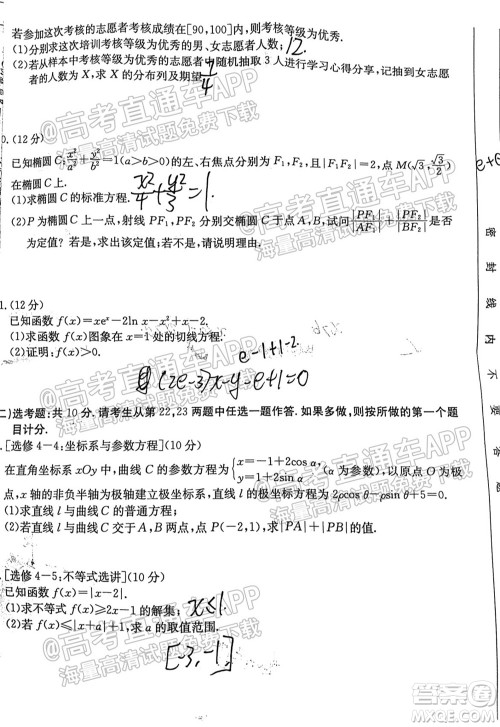 若参加这次考核的志愿者考核成绩在[90,100]内,则考核等级为优秀.
(1)分别求这次培训考核等级为优秀的男、女志愿者人数; 12.
(2)若从样本中考核等级为优秀的志愿者中随机抽取3人进行学习心得分享,记抽到女志愿
者的人数为X,求X的分布列及期望. 7/4
0.(12分)
已知椭圆C:x²/a²+y²/b²=1(a>b>0)的左、右焦点分别为F₁,F₂,且|F₁F₂|=2,点M(√3,√3/2)
在椭圆C上.
(1)求椭圆C的标准方程. x²/4+y²/3=1.
(2)P为椭圆C上一点,射线PF₁,PF₂分别交椭圆C于点A,B,试问|PF₁|/|AF₁|+|PF₂|/|BF₂|是否
为定值?若是,求出该定值;若不是,请说明理由.
1.(12分)
已知函数f(x)=xeˣ-2ln x-x²+x-2.
(1)求函数f(x)图象在x=1处的切线方程;
(2)证明:f(x)>0.
e-1+1-2.
(2e-3)x-y-e+1=0
二)选考题:共10分.请考生从第22,23两题中任选一题作答.如果多做,则按所做的第一个题
目计分.
.[选修4-4:坐标系与参数方程](10分)
在直角坐标系xOy中,曲线C的参数方程为{x=-1+2cos α, y=1+2sin α (α为参数),以坐标原点为
极点,x轴的非负半轴为极轴建立极坐标系,直线l的极坐标方程为2ρcos θ-ρsin θ+5=0.
(1)求直线l与曲线C的普通方程;
(2)若直线l与曲线C交于A,B两点,点P(-2,1),求|PA|+|PB|的值.
.[选修4-5:不等式选讲](10分)
已知函数f(x)=|x-2|.
(1)求不等式f(x)≥2x-1的解集; x≤1.
(2)若f(x)≤|x+a|+1,求a的取值范围.
[-3,-1]
密封线内不要答题
@高考直通车APP
海量高清试题免费下载
@高考直通车APP
海量高清试题免费下载
@高考直通车APP
海量高清试题免费下载
答案圈
MXQE.COM